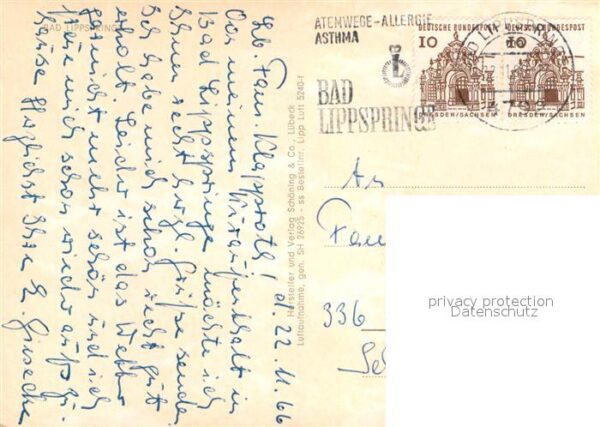 BAD LIPPSPRINGE
Lb. Fam. Klapproth! d. 22.11.66
Von meinem Kuraufenthalt in
Bad Lippspringe möchte ich
Ihnen recht herzl. Grüße senden
Ich habe mich schon recht gut
erholt. Leider ist das Wetter
garnicht mehr schön und ich
freue mich schon wieder auf zu
hause. Herzlichst Ihre E. Giesecke
Hersteller und Verlag Schöning & Co., Lübeck
Luftaufnahme, gen. SH 26925 - ss Bestellnr. Lipp Luft 5240-f
ATEMWEGE-ALLERGIE
ASTHMA
L
BAD
LIPPSPRINGE
DEUTSCHE BUNDESPOST
10
DRESDEN/SACHSEN
DEUTSCHE BUNDESPOST
10
DRESDEN/SACHSEN
An
Fam
336
privacy protection
Datenschutz